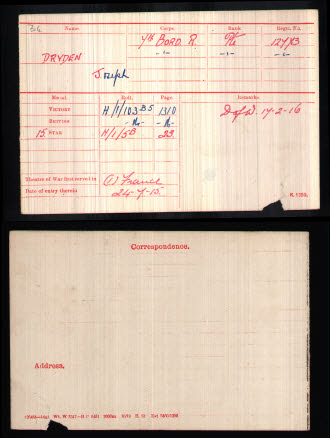 Name. Corps. Rank Regtl. No.
DRYDEN 7th BORD. R. Pte 12773
Joseph
Medal Roll. Page. Remarks.
VICTORY H/1/103 B5 1310 D of W. 17-2-16
BRITISH -do- -do-
15 STAR H/1/5B 23
Theatre of War first served in (1) France
Date of entry therein 24-7-15
K. 1380.
Correspondence.
Address.